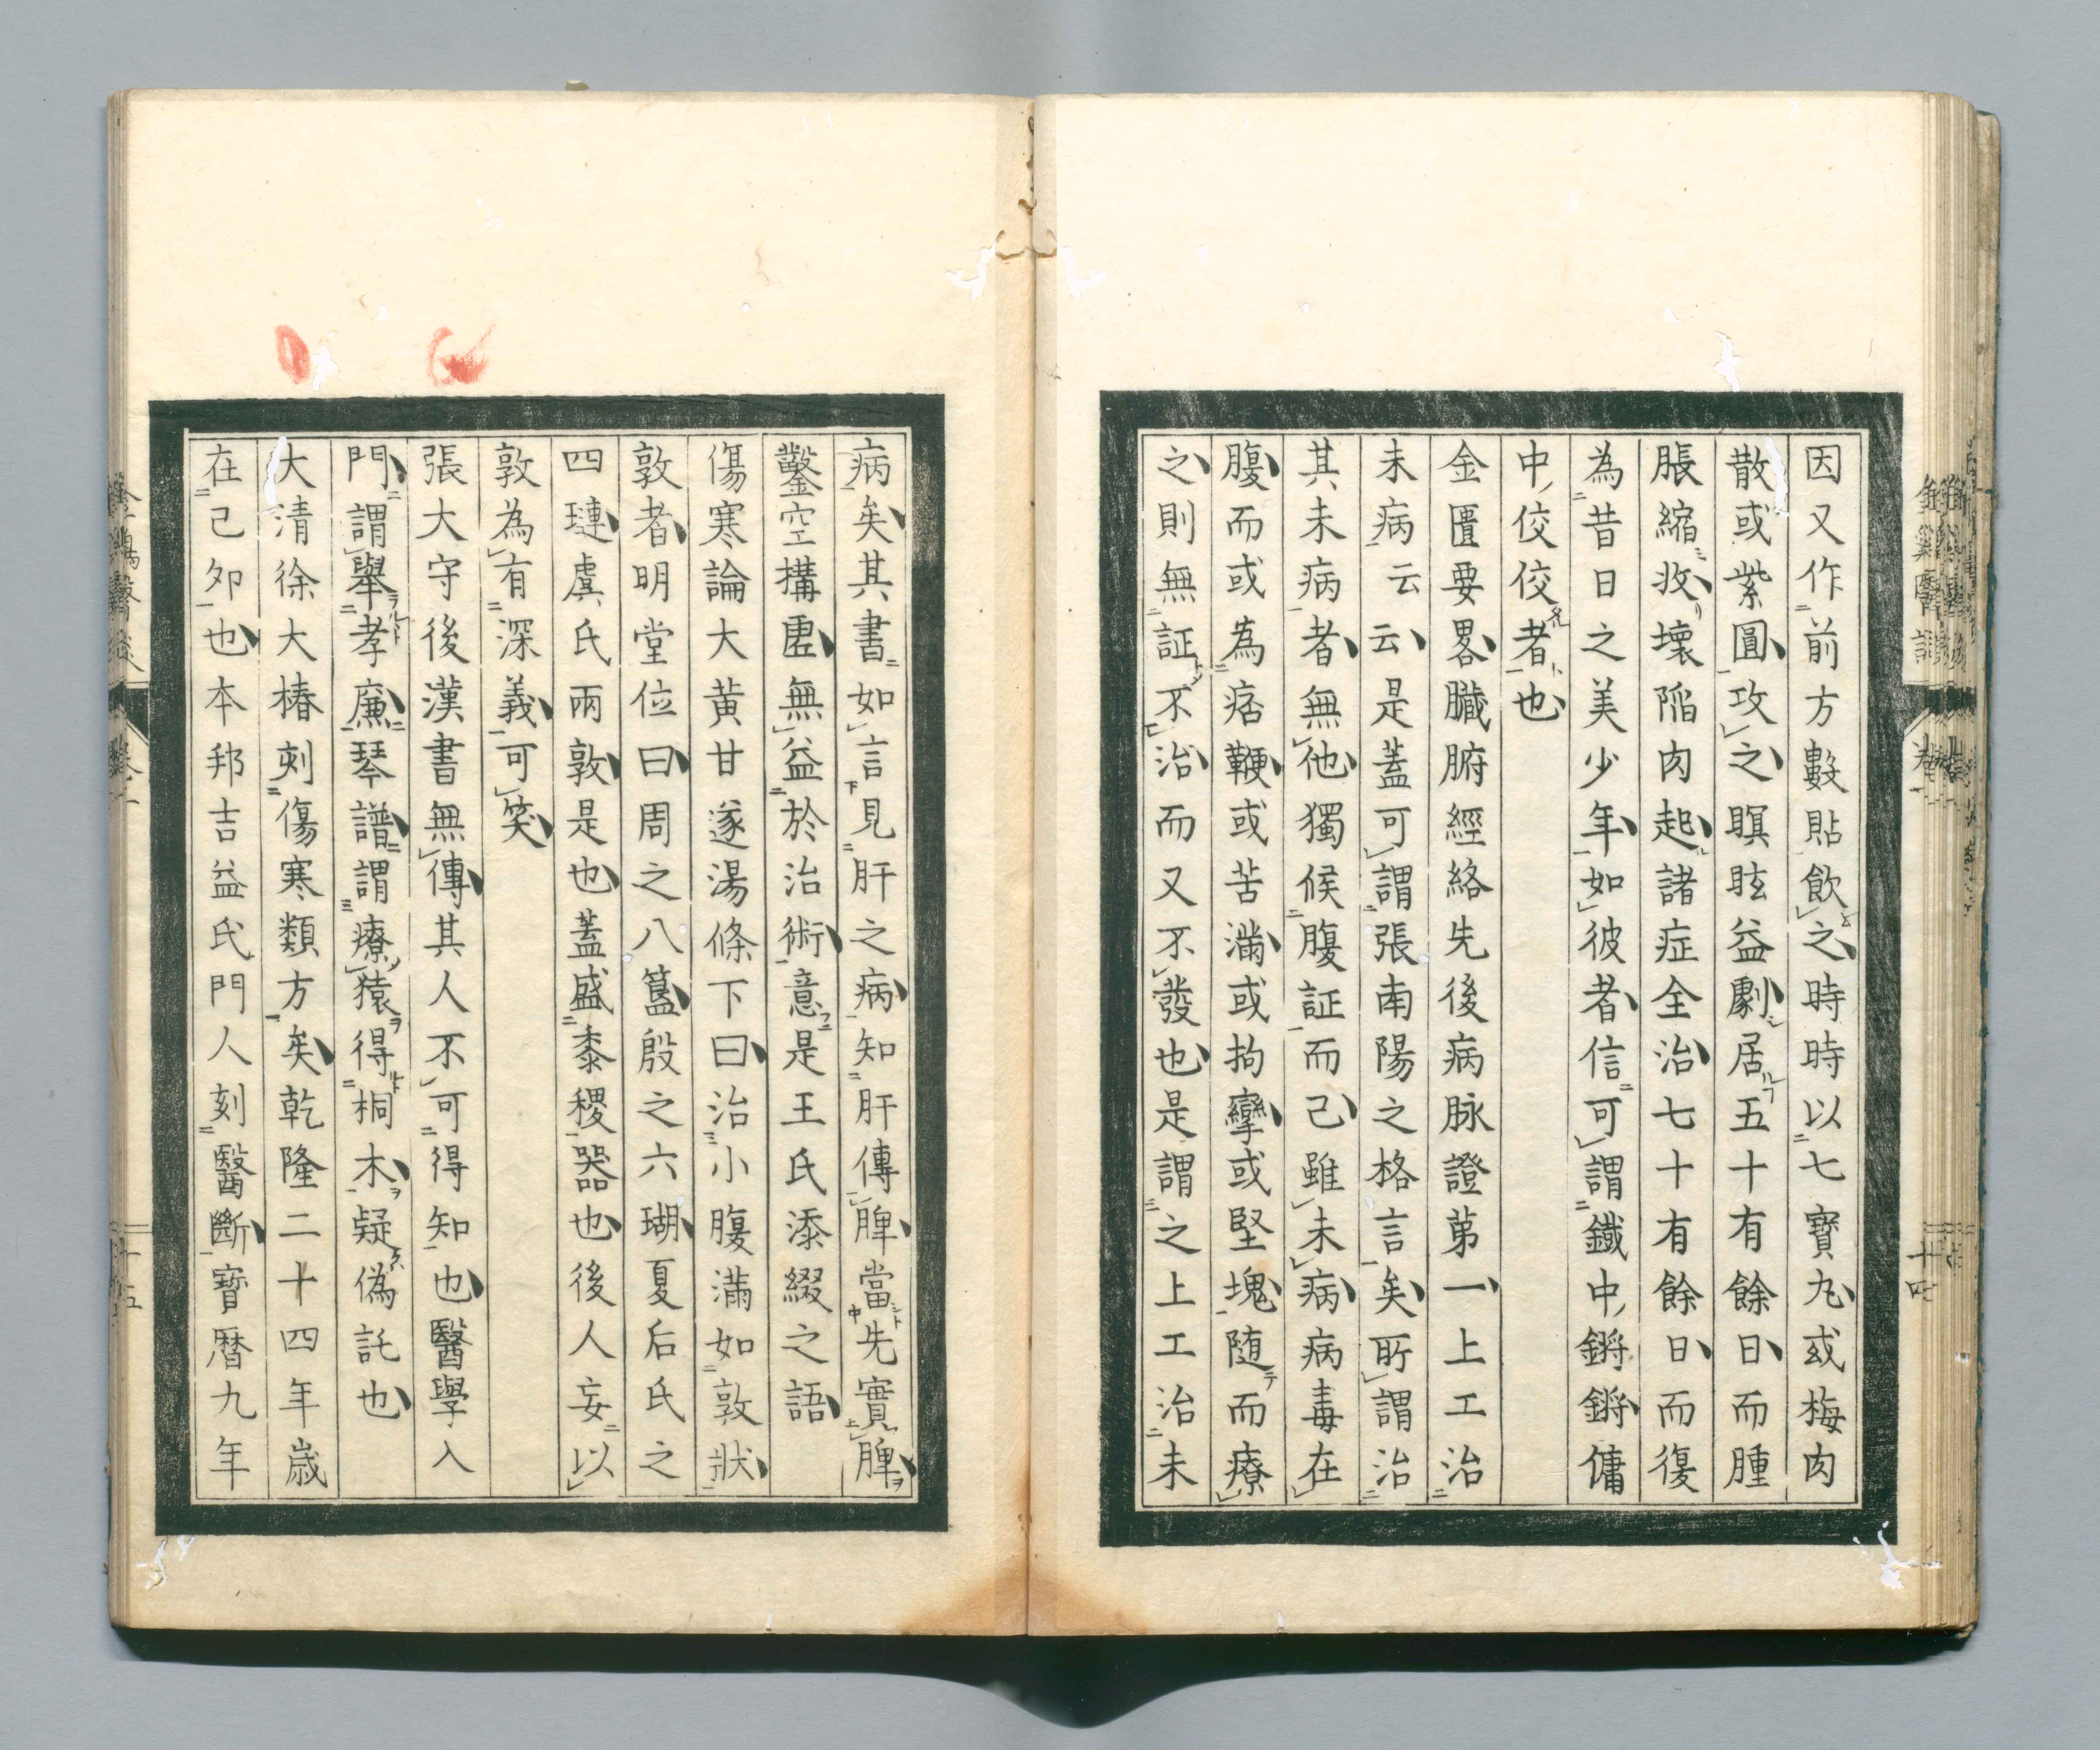 因又作前方數貼飲之時時以七寶丸或梅肉
散或紫圓攻之瞑眩益劇居五十有餘日而腫
脹縮收壞陷肉起諸症全治七十有餘日而復
為昔日之美少年如彼者信可謂鐵中錚錚傭
中佼佼者也
金匱要畧臟腑經絡先後病脉證苐一上工治
未病云云是蓋可謂張南陽之格言矣所謂治
其未病者無他獨候腹証而己雖未病病毒在
腹而或為痞鞕或苦滿或拘攣或堅塊随而療
之則無証不治而又不發也是謂之上工治未
病矣其書如言見肝之病知肝傳脾當先實脾
鑿空搆虛無益於治術意是王氏添綴之語
傷寒論大黄甘遂湯條下曰治小腹滿如敦狀
敦者明堂位曰周之八簋殷之六瑚夏后氏之
四璉虞氏兩敦是也蓋盛黍稷器也後人妄以
敦為有深義可笑
張大守後漢書無傳其人不可得知也醫學入
門謂舉孝廉琴譜謂療猿得桐木疑偽託也
大清徐大椿刻傷寒類方矣乾隆二十四年歳
在己夘也本邦吉益氏門人刻醫斷寳暦九年